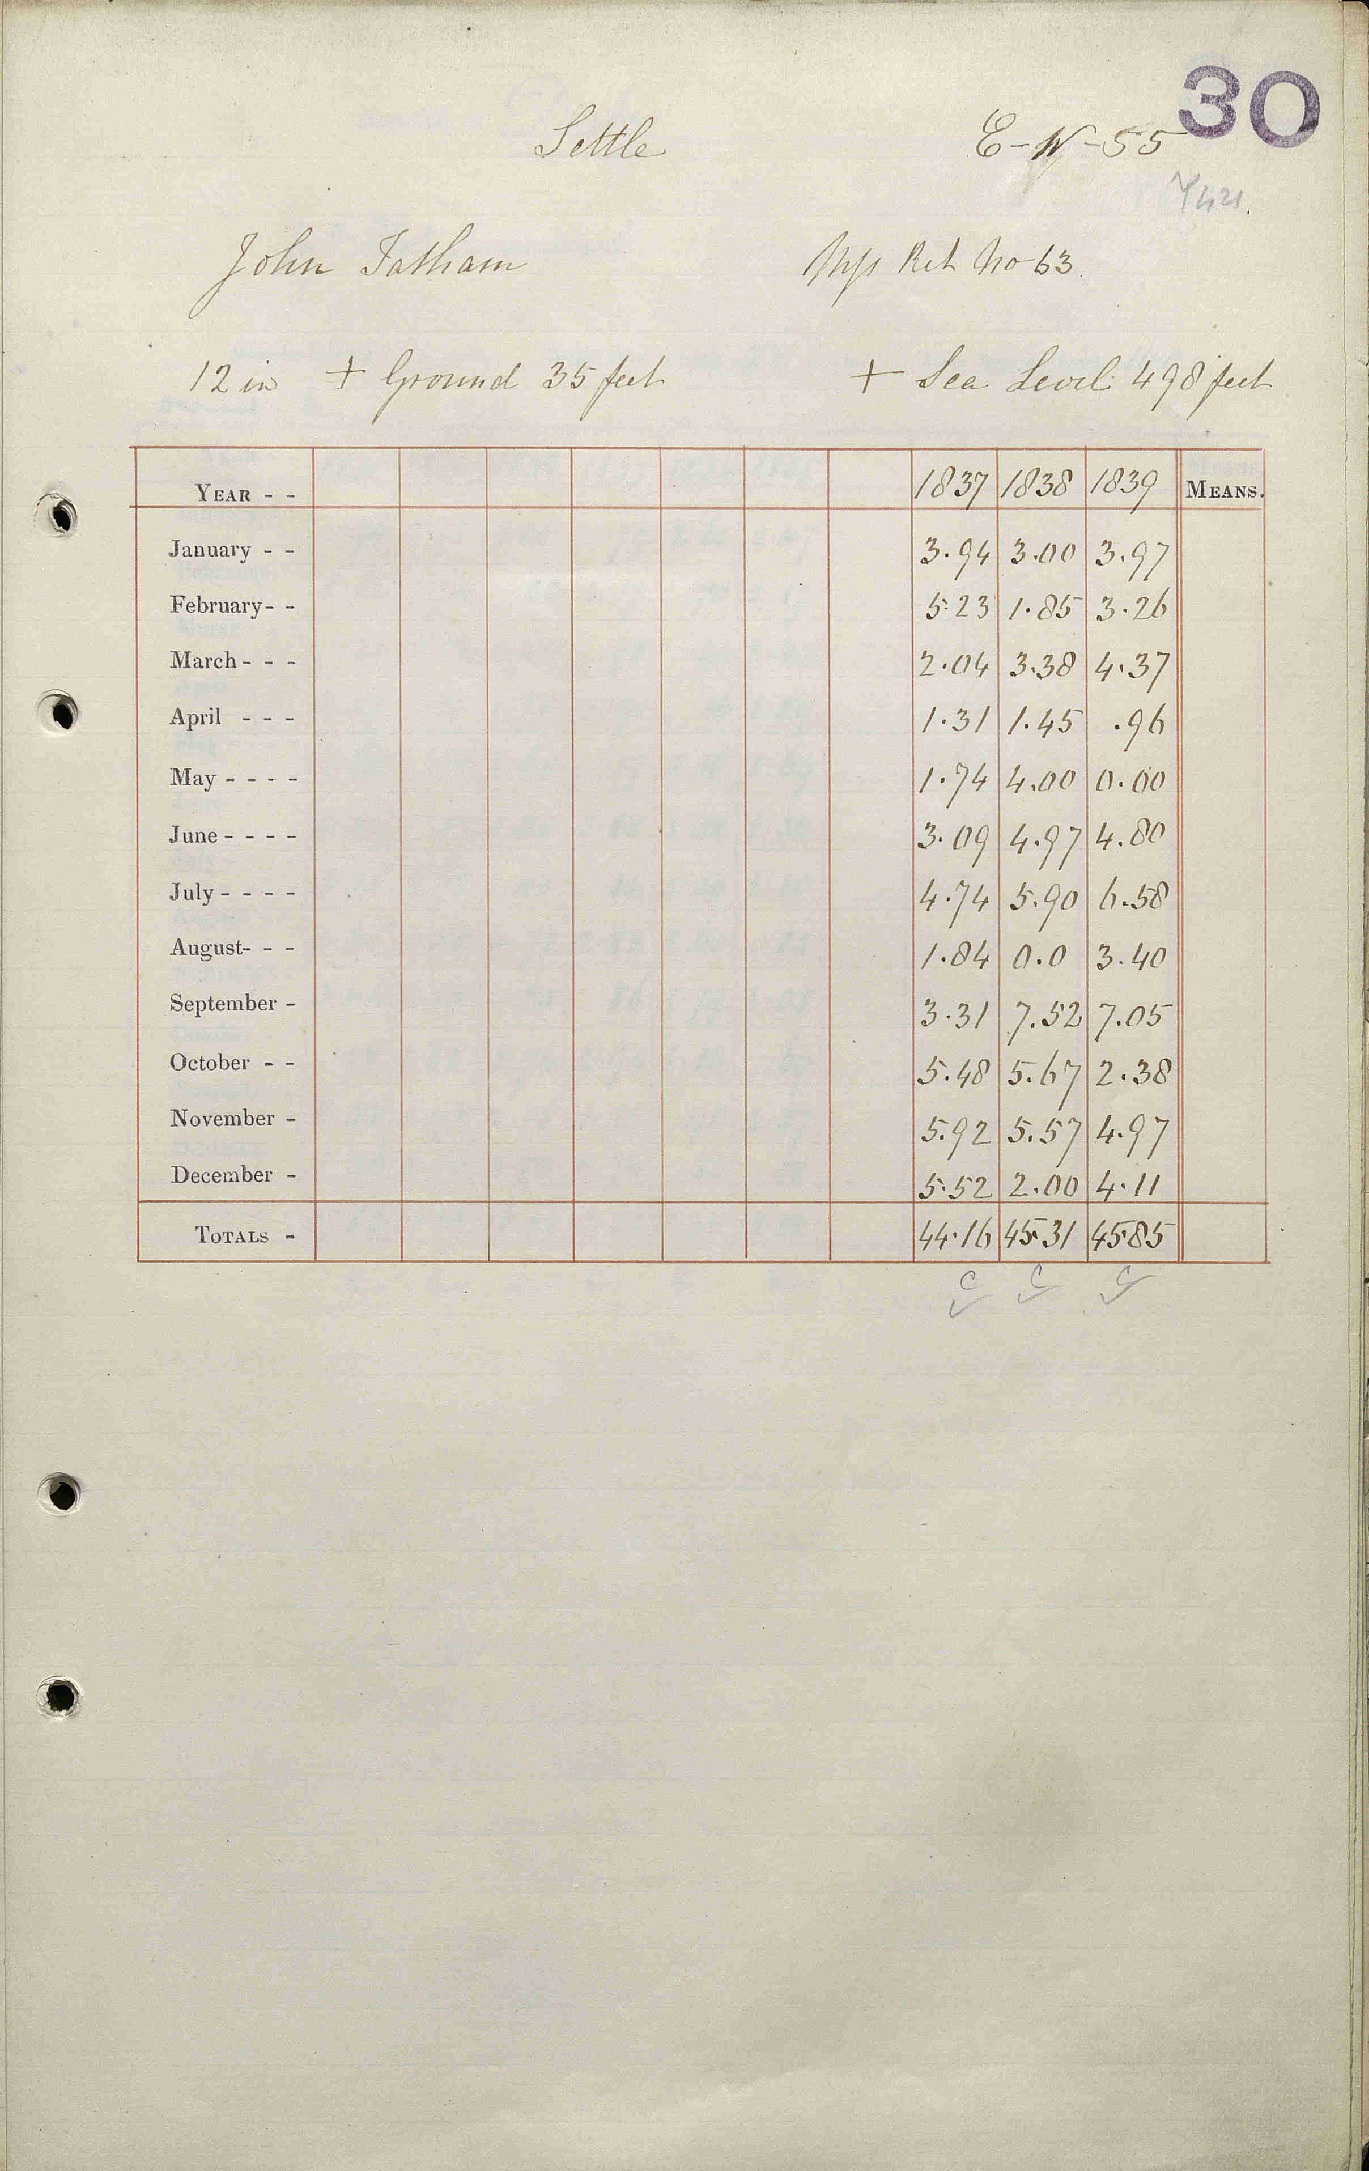 30
Settle E-W-55
John Tatham Ret No 63.
12 in + Ground 35 feet + Sea Level 498 feet
YEAR - - 1837 1838 1839 MEANS.
January - - 3.94 3.00 3.97
February - - 5.23 1.85 3.26
March - - - 2.04 3.38 4.37
April - - - 1.31 1.45 .96
May - - - - 1.74 4.00 0.00
June - - - - 3.09 4.97 4.80
July - - - - 4.74 5.90 6.58
August - - - 1.84 0.0 3.40
September - 3.31 7.52 7.05
October - - 5.48 5.67 2.38
November - 5.92 5.57 4.97
December - 5.52 2.00 4.11
TOTALS - 44.16 45.31 45.85
C C C